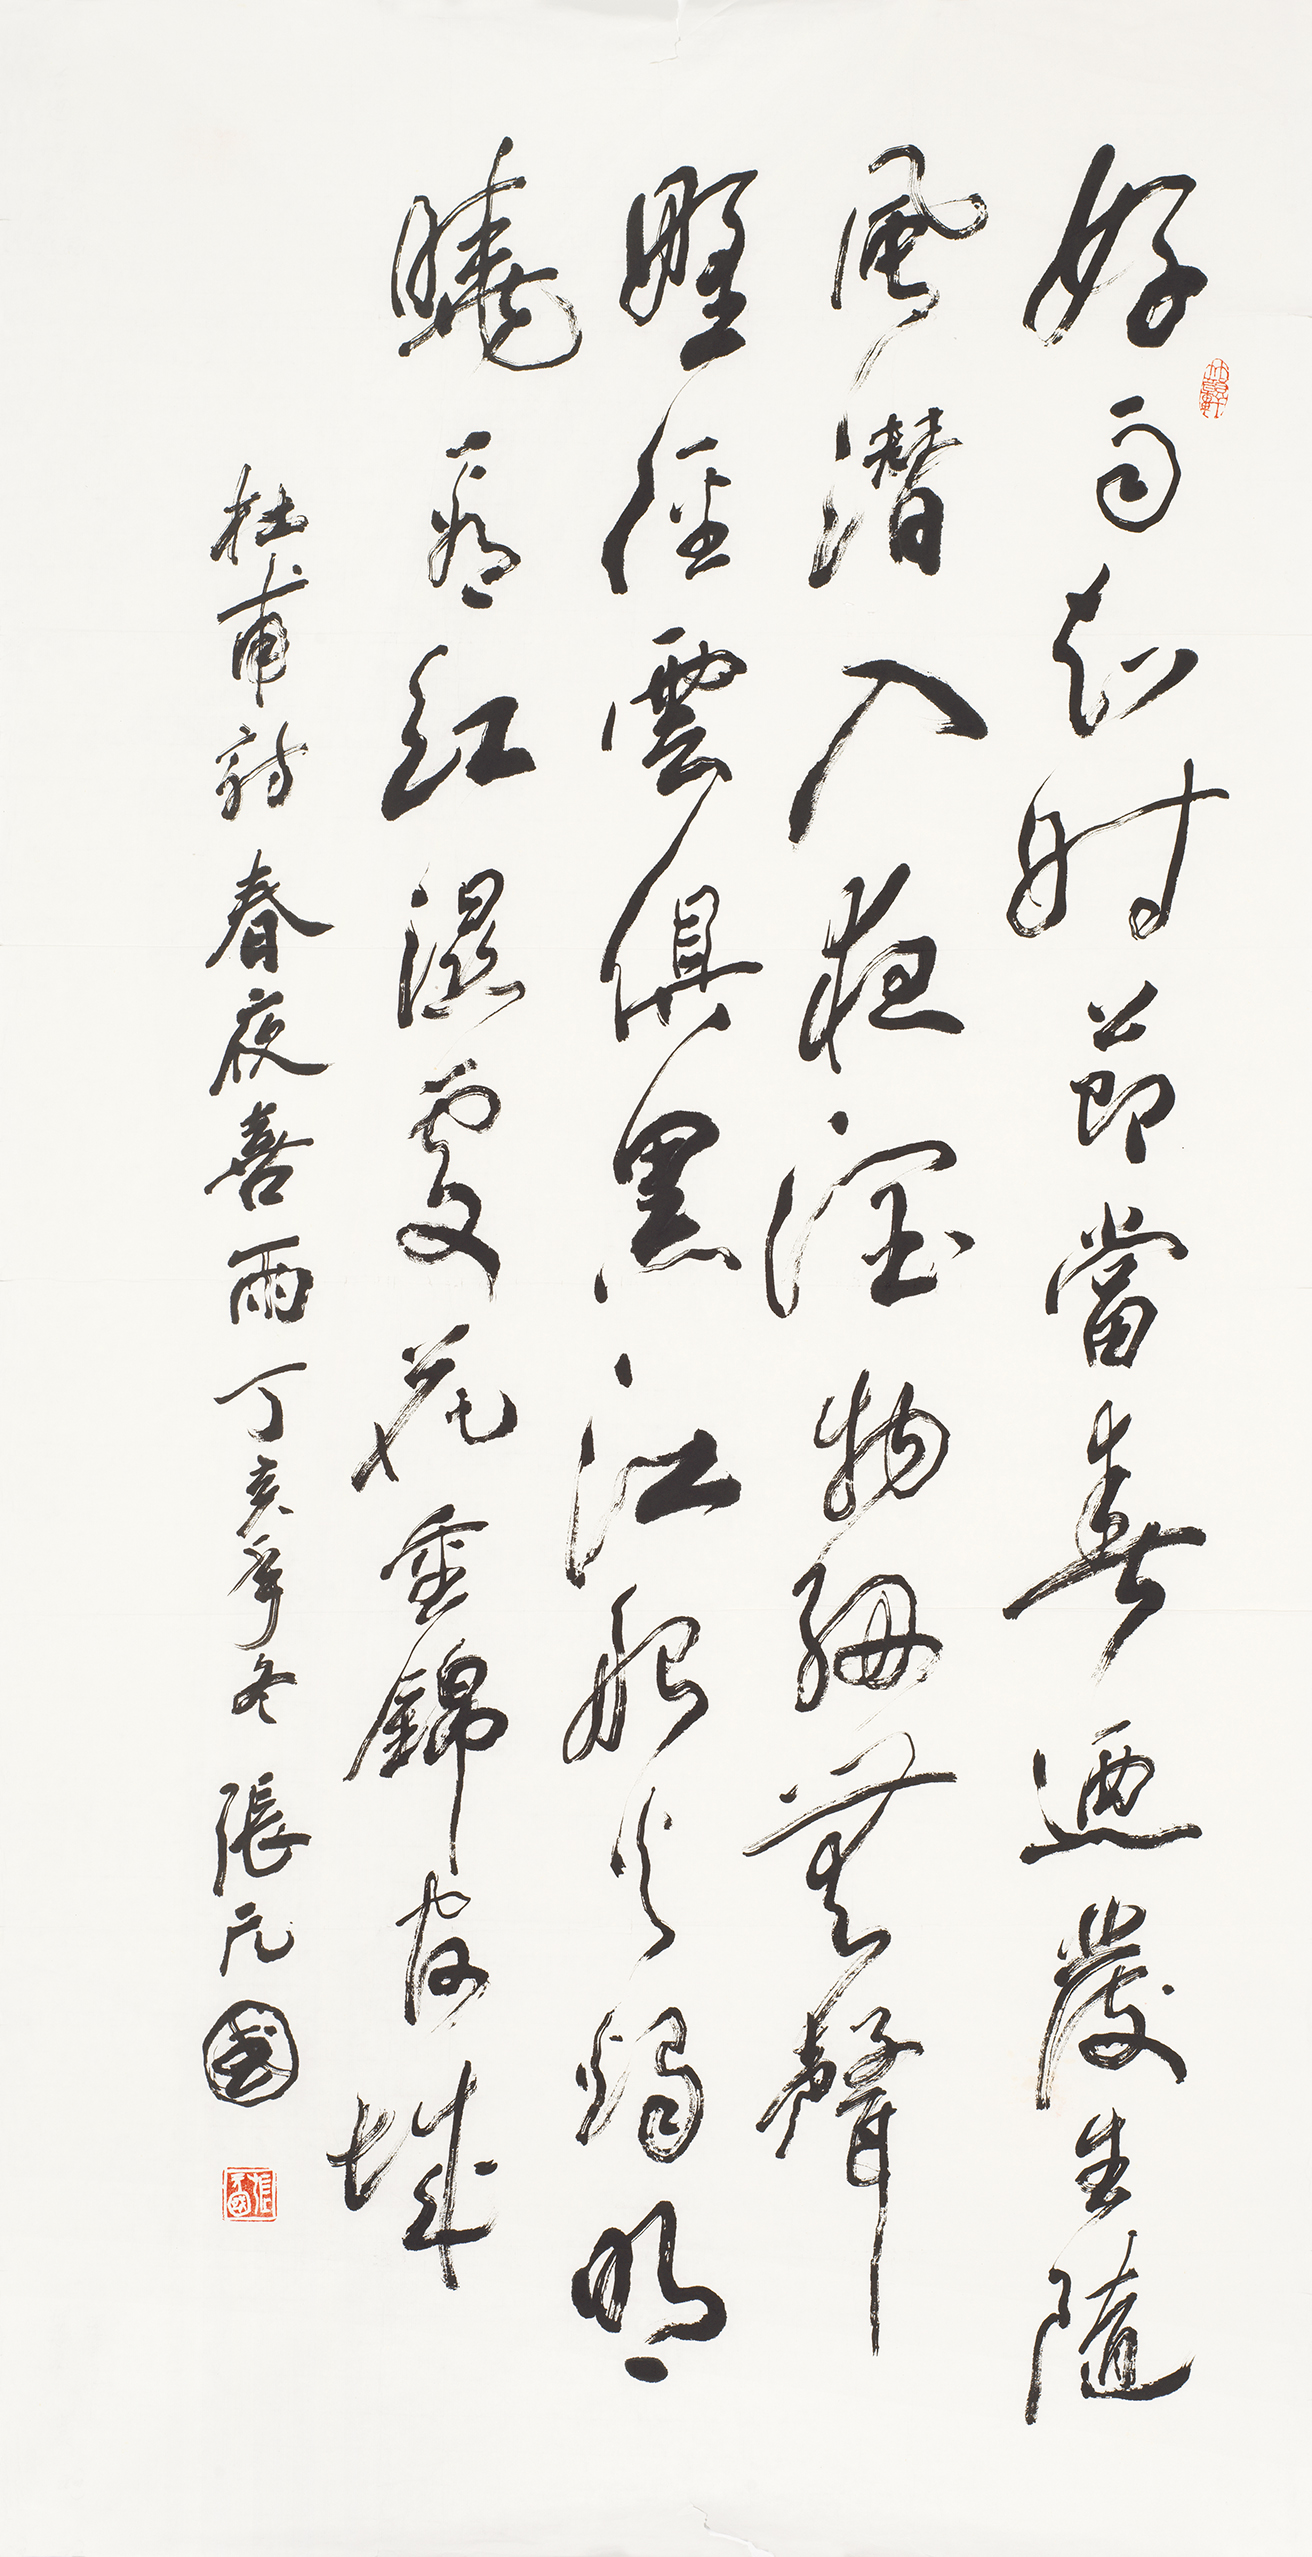 好雨知时節當春迺發生隨
風潛入夜潤物細無聲
野徑雲俱黑江船火燭明
曉看紅濕處花重錦官城
杜甫詩春夜喜雨丁亥年冬張元國